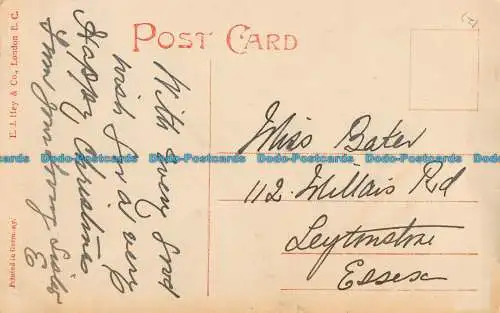 POST CARD
With every good
wish for a very
Happy Christmas
from your loving Sister
E
Miss Baker
112 Millais Rd
Leytonstone
Essex
E. J. Hey & Co., London E. C.
Printed in Germany.
Dodo-Postcards Dodo-Postcards Dodo-Postcards Dodo-Postcards Dodo-Postcards Dodo-Postcards